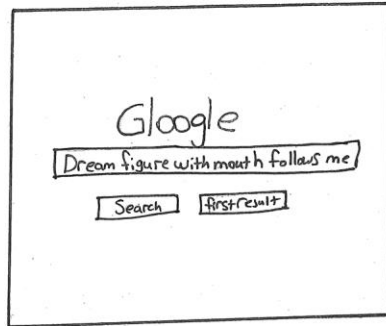 Gloogle
Dream figure with mouth follows me
Search
first result